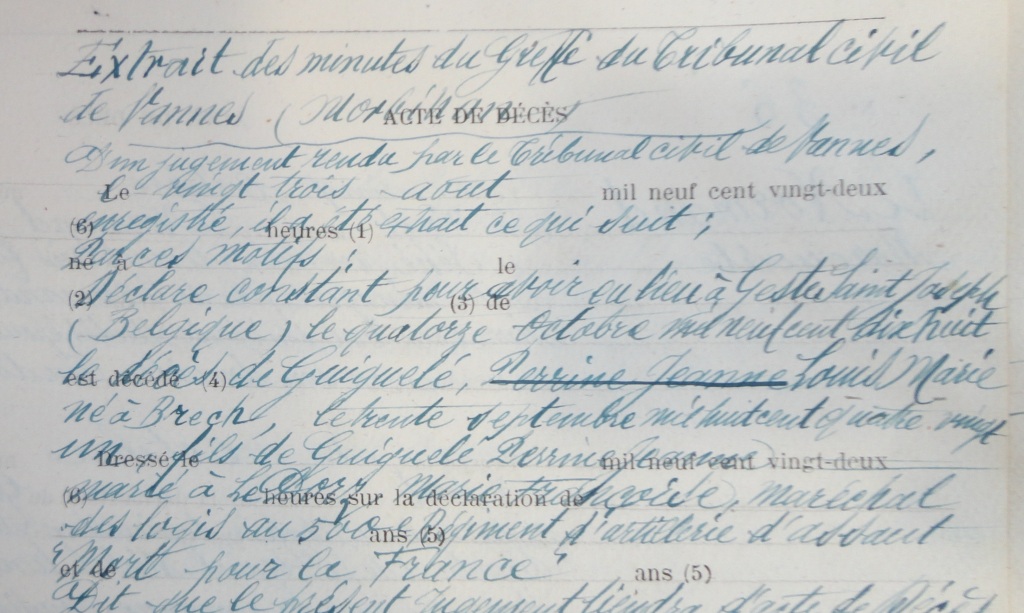 Extrait des minutes du Greffe du Tribunal civil
de Vannes (Morbihan)
ACTE DE DÉCÈS
D'un jugement rendu par le Tribunal civil de Vannes,
Le vingt trois août mil neuf cent vingt-deux
(6) enregistré, il a été extrait ce qui suit ;
heures (1)
Par ces motifs ;
né à le
(2) Déclare constant pour avoir eu lieu à Gestu Saint Joseph
(3) de
(Belgique) le quatorze Octobre mil neuf cent dix huit
le décès de Guiguelé, Perrine Jeanne Louis Marie
est décédé (4)
né à Brech, le trente septembre mil huit cent quatre vingt
un, fils de Guiguelé Perrine Jeanne
Dressé le mil neuf cent vingt-deux
marié à Le Marie Françoise, maréchal
(6) heures sur la déclaration de
des logis au 500e Régiment d'artillerie d'assaut
ans (5)
"Mort pour la France"
et de ans (5)
Dit que le présent Jugement tiendra d'acte de Décès